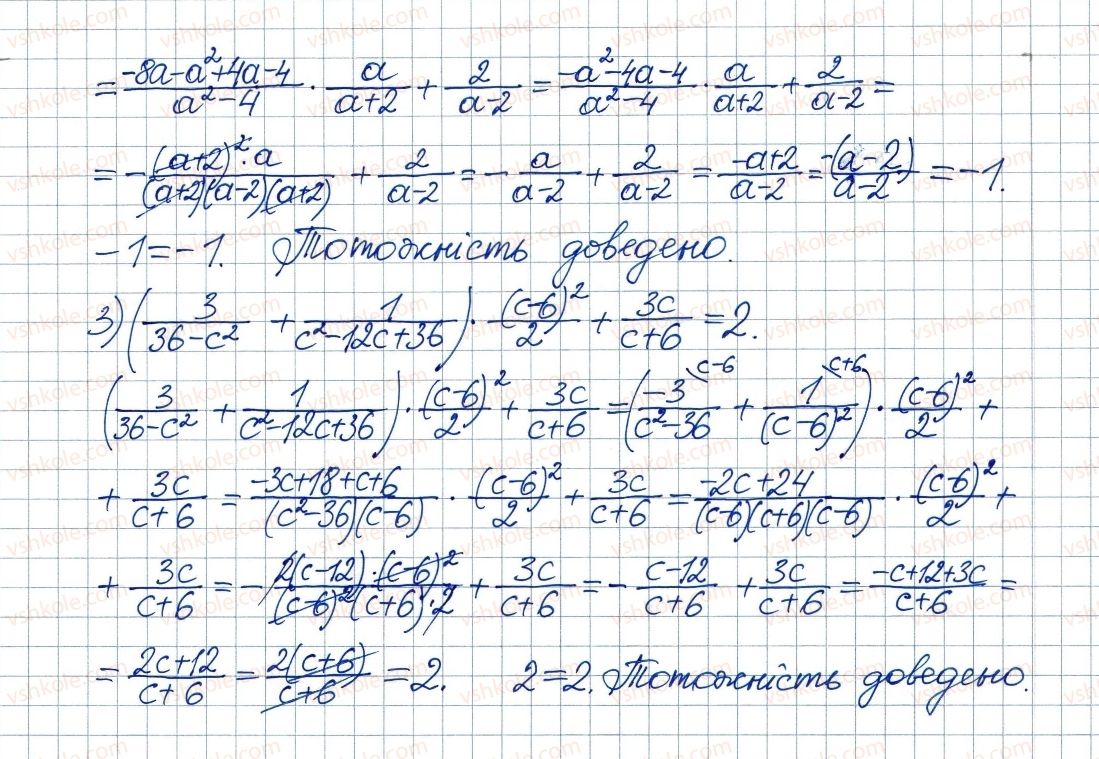 = (-8a-a²+4a-4)/(a²-4) · a/(a+2) + 2/(a-2) = (-a²-4a-4)/(a²-4) · a/(a+2) + 2/(a-2) =
= - ((a+2)²·a)/((a+2)(a-2)(a+2)) + 2/(a-2) = - a/(a-2) + 2/(a-2) = (-a+2)/(a-2) = (-(a-2))/(a-2) = -1.
-1 = -1. Тотожність доведено.
3) (3/(36-c²) + 1/(c²-12c+36)) · (c-6)²/2 + 3c/(c+6) = 2.
(3/(36-c²) + 1/(c²-12c+36)) · (c-6)²/2 + 3c/(c+6) = (-3\c-6/(c²-36) + 1\c+6/(c-6)²) · (c-6)²/2 +
+ 3c/(c+6) = (-3c+18+c+6)/((c²-36)(c-6)) · (c-6)²/2 + 3c/(c+6) = (-2c+24)/((c-6)(c+6)(c-6)) · (c-6)²/2 +
+ 3c/(c+6) = - (2(c-12)·(c-6)²)/((c-6)²(c+6)·2) + 3c/(c+6) = - (c-12)/(c+6) + 3c/(c+6) = (-c+12+3c)/(c+6) =
= (2c+12)/(c+6) = (2(c+6))/(c+6) = 2. 2=2. Тотожність доведено.